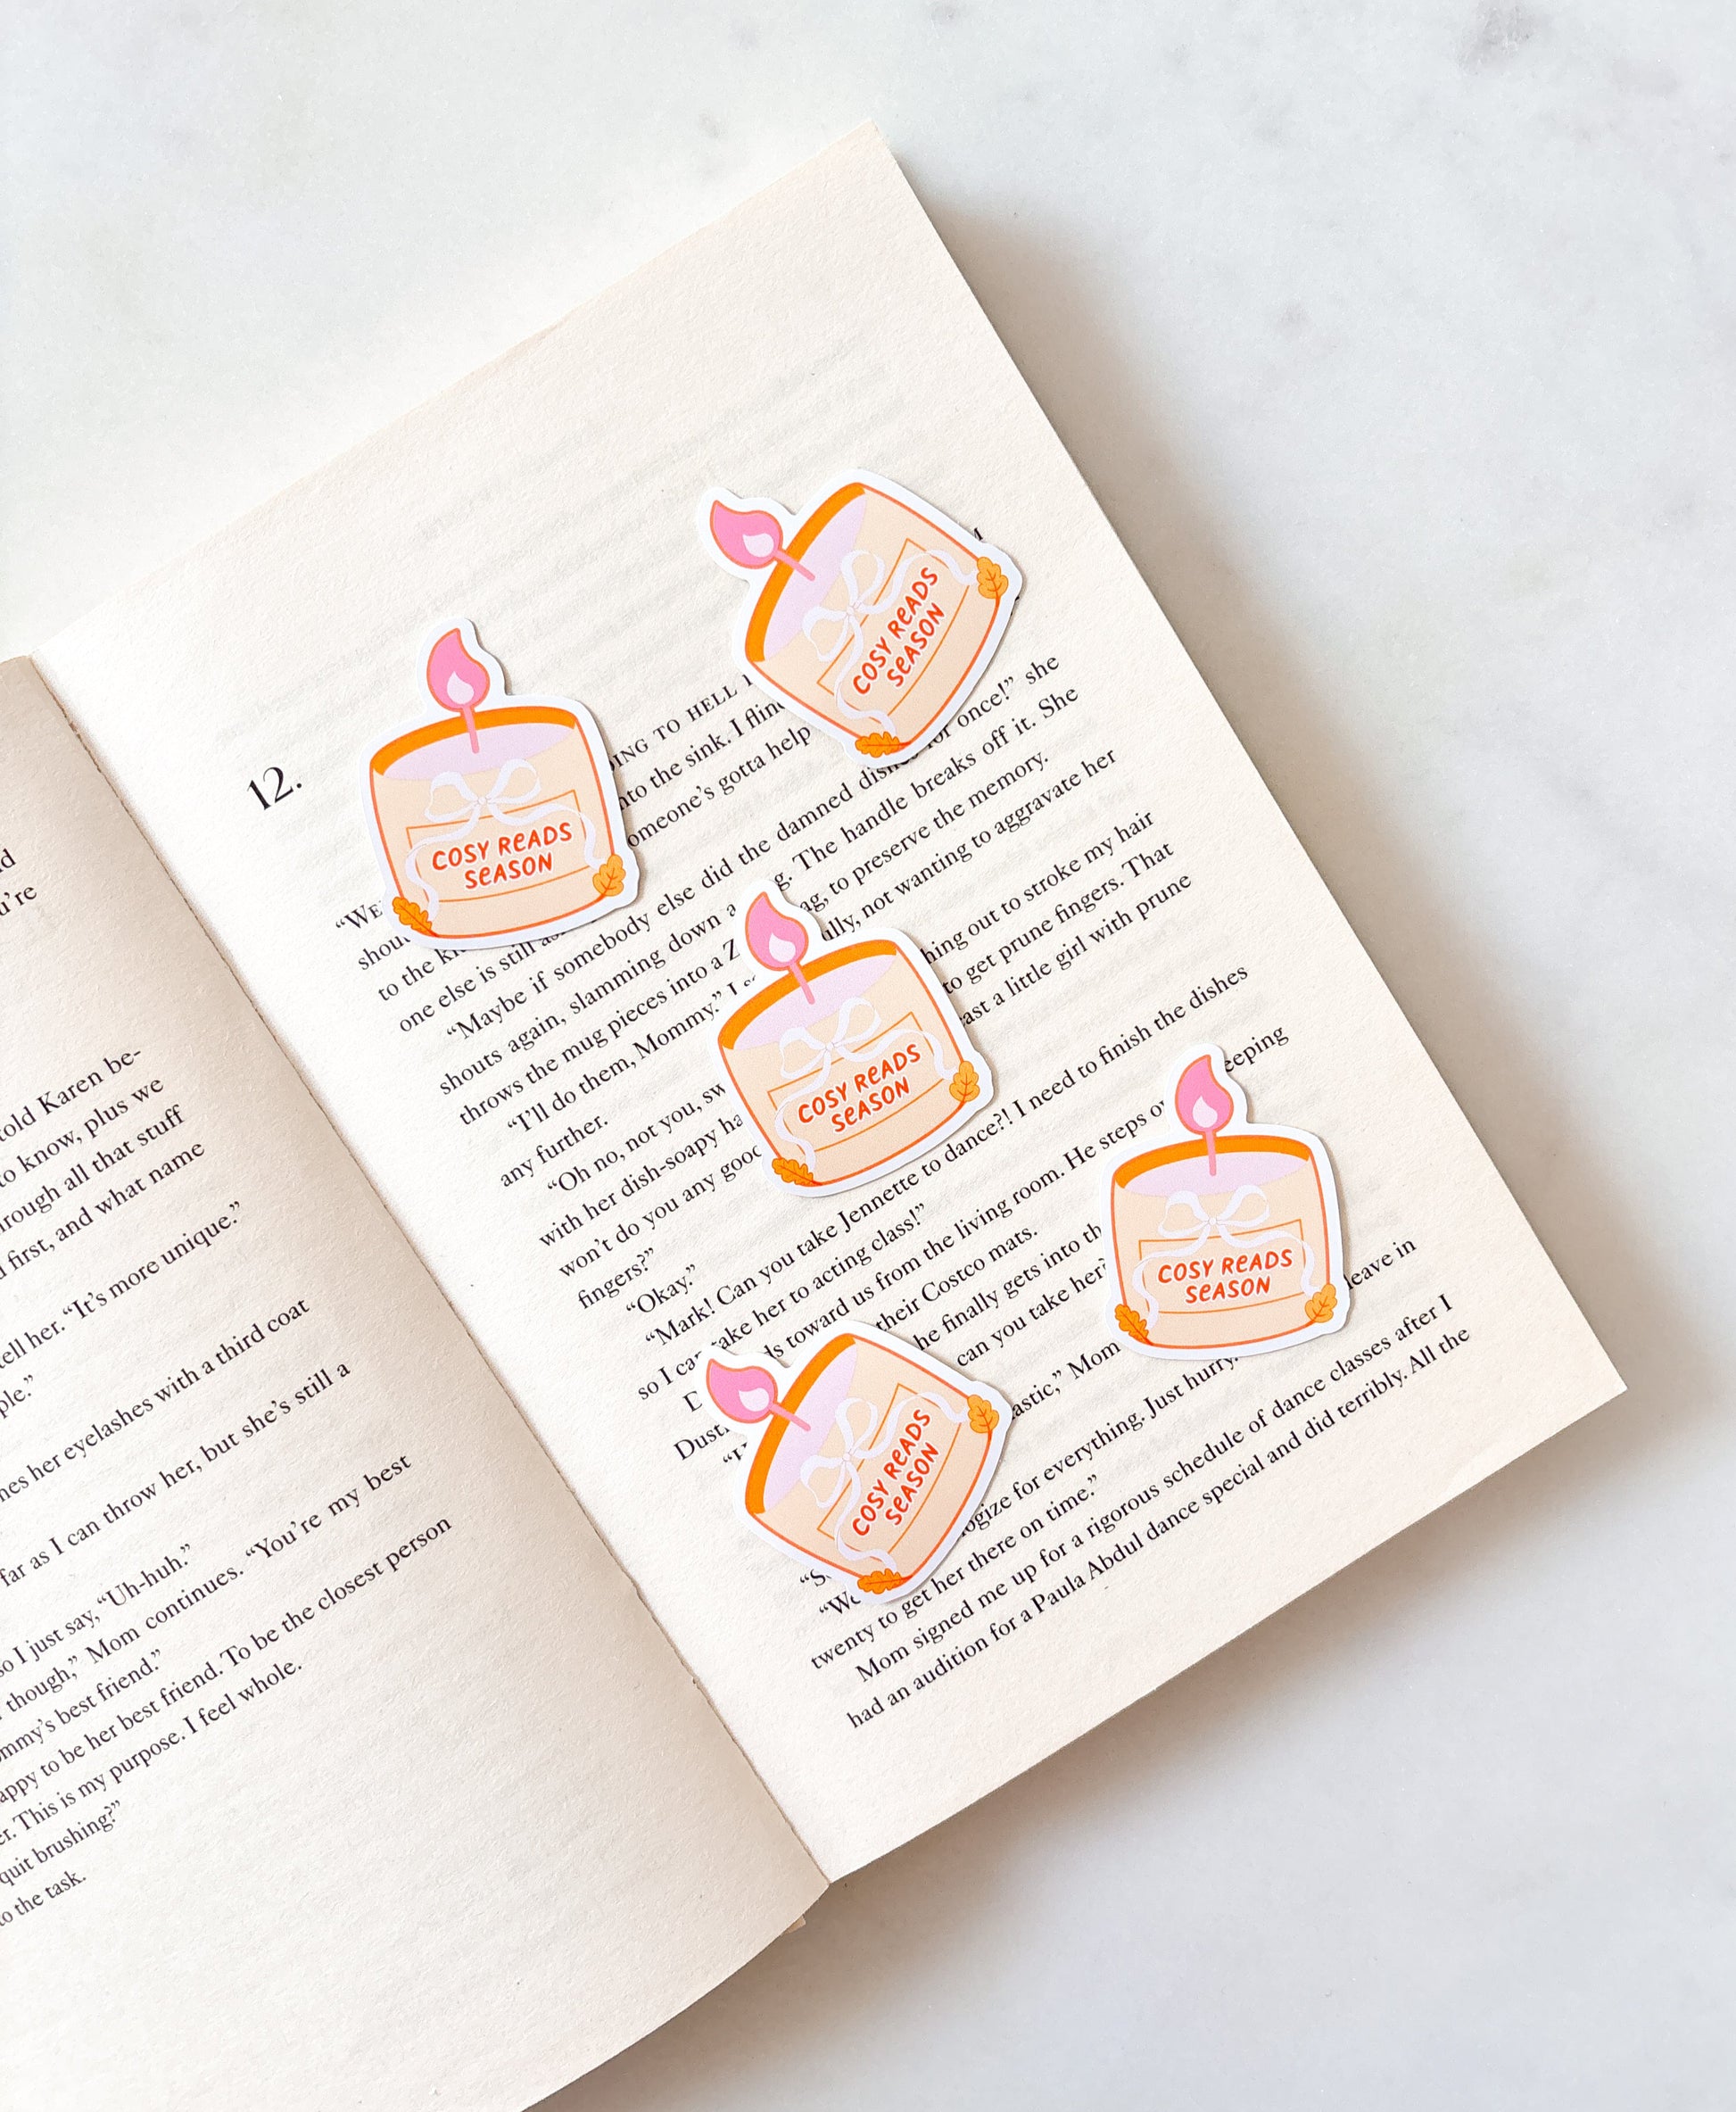 d
u're
told Karen be-
to know, plus we
hrough all that stuff
first, and what name
tell her. “It’s more unique.”
ple.”
hes her eyelashes with a third coat
far as I can throw her, but she’s still a
so I just say, “Uh-huh.”
though,” Mom continues. “You’re my best
ommy’s best friend.”
appy to be her best friend. To be the closest person
er. This is my purpose. I feel whole.
quit brushing?”
to the task.
12.
“WE ING TO HELL
shou nto the sink. I flin
to the ki omeone’s gotta help
one else is still as
“Maybe if somebody else did the damned dishes for once!” she
shouts again, slamming down a g. The handle breaks off it. She
throws the mug pieces into a Z ag, to preserve the memory.
“I’ll do them, Mommy.” I s ully, not wanting to aggravate her
any further.
“Oh no, not you, sw hing out to stroke my hair
with her dish-soapy ha to get prune fingers. That
won’t do you any good ast a little girl with prune
fingers?”
“Okay.”
“Mark! Can you take Jennette to dance?! I need to finish the dishes
so I can take her to acting class!”
D ds toward us from the living room. He steps o eeping
Dust their Costco mats.
he finally gets into th
can you take her?
astic,” Mom leave in
“S ogize for everything. Just hurry.
“We get her there on time.”
twenty to get her there on time.”
Mom signed me up for a rigorous schedule of dance classes after I
had an audition for a Paula Abdul dance special and did terribly. All the
COSY READS
SEASON
COSY READS
SEASON
COSY READS
SEASON
COSY READS
SEASON
COSY READS
SEASON